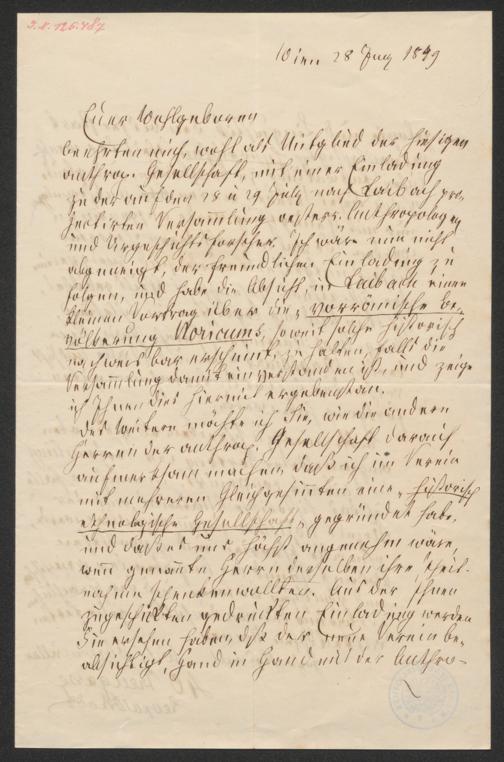 I.N. 126.487
Wien 28 Juny 1879
Euer Wohlgeboren
beehrten mich, wohl als Mitglied der hiesigen
anthrop. Gesellschaft, mit einer Einladung
zu der auf den 28 u 29 July nach Laibach pro-
jectirten Versammlung oesterr. Anthropologen
und Urgeschichtsforscher. Ich wäre nun nicht
abgeneigt, der freundlichen Einladung zu
folgen, und habe die Absicht, in Laibach einen
kleinen Vortrag über die „vorrömische Be-
völkerung Noricums, soweit solche historisch
nachweisbar erscheint, zu halten, falls die
Versammlung damit einverstanden ist, und zeige
ich Ihnen dies hiermit ergebenst an.
Des Weitern möchte ich Sie, wie die andern
Herren der anthrop. Gesellschaft darauf
aufmerksam machen, daß ich im Verein
mit mehreren Gleichgesinnten eine „historisch
ethnologische Gesellschaft" gegründet habe,
und daß es uns höchst angenehm wäre,
wenn genannte Herrn derselben ihre Theil-
nahme schenken wollten. Aus der Ihnen
zugeschickten gedruckten Einladung werden
Sie ersehen haben, daß der neue Verein be-
absichtigt, Hand in Hand mit der Anthro-